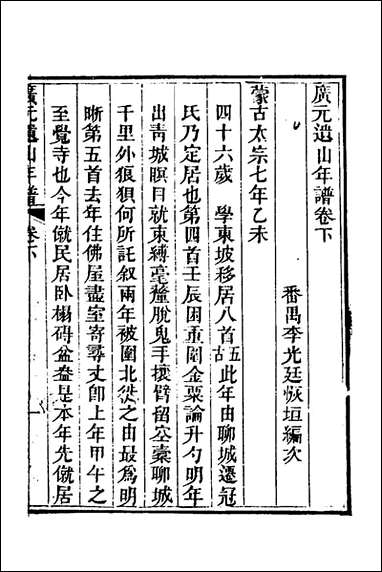 廣元遺山年譜卷下
番禺李光廷恢垣編次
蒙古太宗七年乙未
四十六歲 學東坡移居八首五古此年由聊城遷冠
氏乃定居也第四首壬辰困重圍金粟論升勺明年
出青城瞑目就束縛毫釐脫鬼手攘臂留空橐聊城
千里外狼狽何所託叙兩年被圍北從之由最爲明
晰第五首去年住佛屋盡室寄尋丈卽上年甲午之
至覺寺也今年僦民居臥榻碍盆盎是本年先僦居
廣元遺山年譜 卷下
一